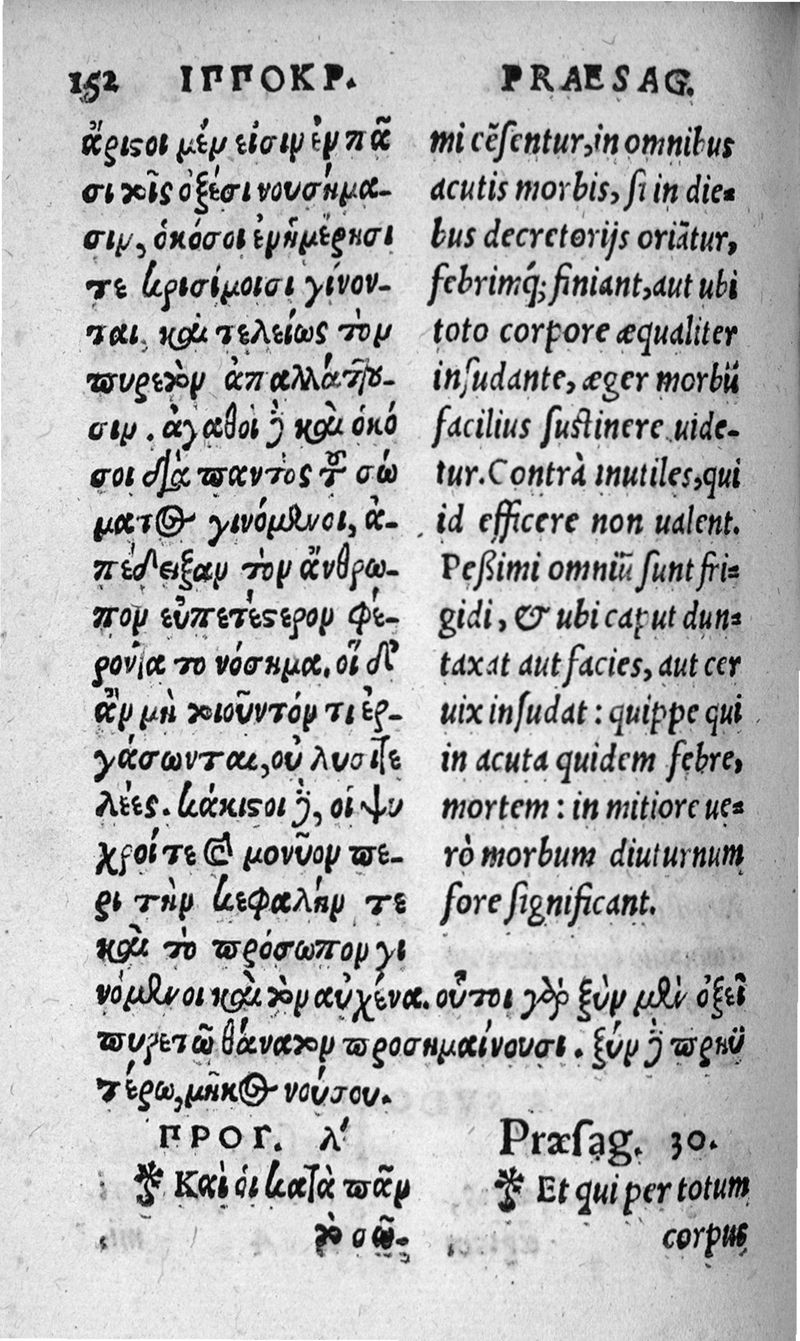 152 ΙΠΠΟΚΡ.
ἄριϛοι μέν εἰσιν ἐν πᾶ
σι τοῖς ὀξέσι νουσήμα-
σιν, ὁκόσοι ἐν ἡμέρῃσι
τε κρισίμοισι γίνον-
ται, καὶ τελείως τὸν
πυρετὸν ἀπαλλάττου-
σιν. ἀγαθοὶ δὲ καὶ ὁκό
σοι διὰ παντὸς τοῦ σώ
ματος γινόμενοι, ἀ-
πέδειξαν τὸν ἄνθρω-
πον εὐπετέϛερον φέ-
ροντα το νόσημα. οἳ δ'
ἂν μὴ τοιοῦντόν τι ἐρ-
γάσωνται, οὐ λυσιτε
λέες. κάκιϛοι δὲ, οἱ ψυ
χροί τε καὶ μονῦον πε-
ρι τὴν κεφαλὴν τε
καὶ το πρόσωπον γι
νόμενοι καὶ τὸν αὐχένα. οὗτοι γὰρ ξὺν μὲν ὀξεῖ
πυρετῶ θάνατον προσημαίνουσι. ξύν δὲ πρηϋ
τέρω, μῆκος νούσου.
ΠΡΟΓ. λ'
Καὶ οἱ κατὰ πᾶν
τὸ σῶ-
PRAESAG.
mi cẽsentur, in omnibus
acutis morbis, si in die-
bus decretorijs oriãtur,
febrimq́; finiant, aut ubi
toto corpore æqualiter
insudante, æger morbũ
facilius sustinere uide-
tur. Contrà inutiles, qui
id efficere non ualent.
Peßimi omniũ sunt fri-
gidi, & ubi caput dun-
taxat aut facies, aut cer
uix insudat : quippe qui
in acuta quidem febre,
mortem : in mitiore ue-
rò morbum diuturnum
fore significant.
Præsag. 30.
Et qui per totum
corpus